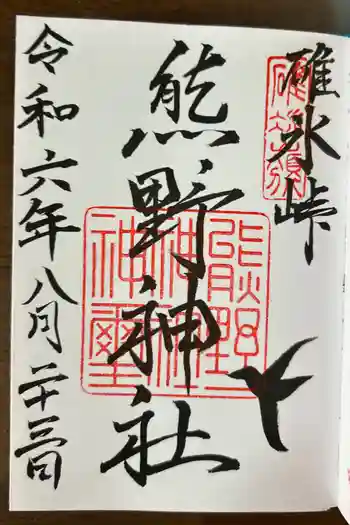 碓氷峠
碓氷嶺
熊野神社
熊野
神社
神璽
令和六年八月二十三日